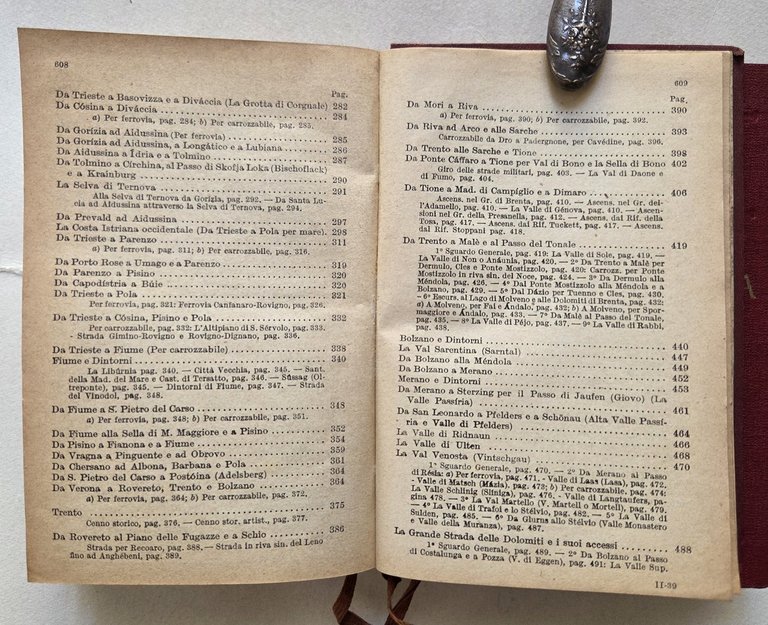 608
Pag.
Da Trieste a Basovizza e a Diváccia (La Grotta di Corgnale) 282
Da Cósina a Diváccia 284
a) Per ferrovia, pag. 284; b) Per carrozzabile, pag. 285.
Da Gorízia ad Aidussina (Per ferrovia) 285
Da Gorízia ad Aidussina, a Longático e a Lubiana 286
Da Aidussina a Ídria e a Tolmino 287
Da Tolmino a Círchina, al Passo di Skofja Loka (Bischoflack)
e a Krainburg 290
La Selva di Ternova 291
Alla Selva di Ternova da Gorízia, pag. 292. — Da Santa Lu-
cia ad Aidussina attraverso la Selva di Ternova, pag. 294.
Da Prevald ad Aidussina 297
La Costa Istriana occidentale (Da Trieste a Pola per mare). 298
Da Trieste a Parenzo 311
a) Per ferrovia, pag. 311; b) Per carrozzabile, pag. 316.
Da Porto Rose a Umago e a Parenzo 319
Da Parenzo a Pisino 320
Da Capodístria a Búie 320
Da Trieste a Pola 321
Per ferrovia, pag. 321: Ferrovia Canfanaro-Rovigno, pag. 326.
Da Trieste a Cósina, Pisino e Pola 332
Per carrozzabile, pag. 332: L'Altipiano di S. Sérvolo, pag. 333.
- Strada Gimino-Rovigno e Rovigno-Dignano, pag. 336.
Da Trieste a Fiume (Per carrozzabile) 338
Fiume e Dintorni 340
La Libúrnia pag. 340. — Città Vecchia, pag. 345. — Sant.
della Mad. del Mare e Cast. di Tersatto, pag. 346. — Sùssag (Ol-
treponte), pag. 345. — Dintorni di Fiume, pag. 347. — Strada
del Vinodol, pag. 348.
Da Fiume a S. Pietro del Carso 348
a) Per ferrovia, pag. 348; b) Per carrozzabile, pag. 351.
Da Fiume alla Sella di M. Maggiore e a Pisino 352
Da Pisino a Fianona e a Fiume 354
Da Vragna a Pinguente e ad Obrovo 359
Da Chersano ad Albona, Barbana e Pola 361
Da S. Pietro del Carso a Postóina (Adelsberg) 364
Da Verona a Rovereto, Trento e Bolzano 364
a) Per ferrovia, pag. 364; b) Per carrozzabile, pag. 372.
Trento 375
Cenno storico, pag. 376. — Cenno stor. artist., pag. 377.
Da Rovereto al Piano delle Fugazze e a Schio 386
Strada per Recoaro, pag. 388. — Strada in riva sin. del Leno
fino ad Anghébeni, pag. 389.
609
Pag.
Da Mori a Riva 390
a) Per ferrovia, pag. 390; b) Per carrozzabile, pag. 392.
Da Riva ad Arco e alle Sarche 393
Carrozzabile da Dro a Padergnone, per Cavédine, pag. 396.
Da Trento alle Sarche e Tione 398
Da Ponte Cáffaro a Tione per Val di Bono e la Sella di Bono 402
Giro delle strade militari, pag. 403. — La Val di Daone e
di Fumo, pag. 404.
Da Tione a Mad. di Campíglio e a Dimaro 406
Ascens. nel Gr. di Brenta, pag. 410. — Ascens. nel Gr. del-
l'Adamello, pag. 410. — La Valle di Génova, pag. 410. — Ascen-
sioni nel Gr. della Presanella, pag. 412. — Ascens. dal Rif. della
Tosa, pag. 417. — Ascens. dal Rif. Tuckett, pag. 417. — Ascens.
dal Rif. Stoppani pag. 418.
Da Trento a Malè e al Passo del Tonale 419
1º Sguardo Generale, pag. 419: La Valle di Sole, pag. 419. —
La Valle di Non o Anáunia, pag. 420. — 2º Da Trento a Malè per
Dermulo, Cles e Ponte Mostizzolo, pag. 420: Carrozz. per Ponte
Mostizzolo in riva sin. del Noce, pag. 424. — 3º Da Dermulo alla
Méndola, pag. 426. — 4º Dal Ponte Mostizzolo alla Méndola e a
Bolzano, pag. 429. — 5º Dal Dázio per Tuenno e Cles, pag. 430.
— 6º Escurs. al Lago di Molveno e alle Dolomiti di Brenta, pag. 432;
a) A Molveno, per Fai e Ándalo, pag. 432; b) A Molveno, per Spor-
maggiore e Ándalo, pag. 433. — 7º Da Malè al Passo del Tonale,
pag. 435. — 8º La Valle di Péjo, pag. 437. — 9º La Valle di Rabbi,
pag. 438.
Bolzano e Dintorni 440
La Val Sarentina (Sarntal) 447
Da Bolzano alla Méndola 449
Da Bolzano a Merano 452
Merano e Dintorni 453
Da Merano a Sterzing per il Passo di Jaufen (Giovo) (La
Valle Passíria) 461
Da San Leonardo a Pfelders e a Schönau (Alta Valle Passí-
ria e Valle di Pfelders) 464
La Valle di Ridnaun 466
La Valle di Ulten 468
La Val Venosta (Vintschgau) 470
1º Sguardo Generale, pag. 470. — 2º Da Merano al Passo
di Résia: a) Per ferrovia, pag. 471. - Valle di Laas (Lasa), pag. 472.
- Valle di Matsch (Mázia), pag. 473; b) Per carrozzabile, pag. 474:
La Valle Schlinig (Slíniga), pag. 476. - Valle di Langtaufers, pa-
gina 478. — 3º La Val Martello (V. Martell o Mortell), pag.
479. — 4º La Valle di Trafoi e lo Stélvio, pag. 480. — 5º La Valle di
Sulden, pag. 485. — 6º Da Glurns allo Stélvio (Valle Monastero
e Valle della Muranza), pag. 487.
La Grande Strada delle Dolomiti e i suoi accessi 488
1º Sguardo Generale, pag. 489. — 2º Da Bolzano al Passo
di Costalunga e a Pozza (V. di Eggen), pag. 491: La Valle Sup.
II-39